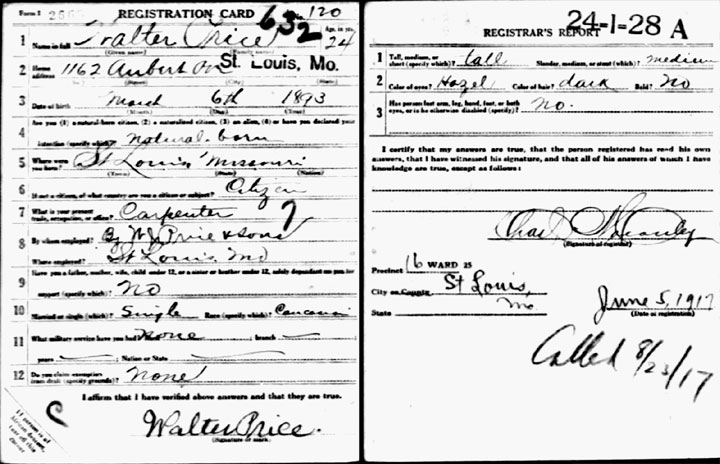 Form 1 REGISTRATION CARD 632 No. 120
1 Name in full Walter Price Age, in yrs. 24
(Given name) (Family name)
2 Home address 1162 Aubert Ave St. Louis, Mo.
3 Date of birth March 6th 1893
(Month) (Day) (Year)
4 Are you (1) a natural-born citizen, (2) a naturalized citizen, (3) an alien, (4) or have you declared your
intention (specify which)? Natural-born
5 Where were you born? St Louis Missouri
(Town) (State) (Nation)
6 If not a citizen, of what country are you a citizen or subject? Citizen
7 What is your present trade, occupation, or office? Carpenter 7
8 By whom employed? By W J Price & Sons
Where employed? St Louis Mo
9 Have you a father, mother, wife, child under 12, or a sister or brother under 12, solely dependent on you for
support (specify which)? No
10 Married or single (which)? Single Race (specify which)? Caucasian
11 What military service have you had? None ; branch
years ; Nation or State
12 Do you claim exemption from draft (specify grounds)? None
I affirm that I have verified above answers and that they are true.
Walter Price.
(Signature or mark)
If person is of African descent, tear off this corner
24-1-28 A
REGISTRAR'S REPORT
1 Tall, medium, or short (specify which)? tall Slender, medium, or stout (which)? medium
2 Color of eyes? Hazel Color of hair? dark Bald? No
3 Has person lost arm, leg, hand, foot, or both eyes, or is he otherwise disabled (specify)? No.
I certify that my answers are true, that the person registered has read his own
answers, that I have witnessed his signature, and that all of his answers of which I have
knowledge are true, except as follows:
(Signature of registrar)
Precinct 16 WARD 25
City or County St Louis,
State Mo
June 5, 1917
(Date of registration)
Called 8/23/17